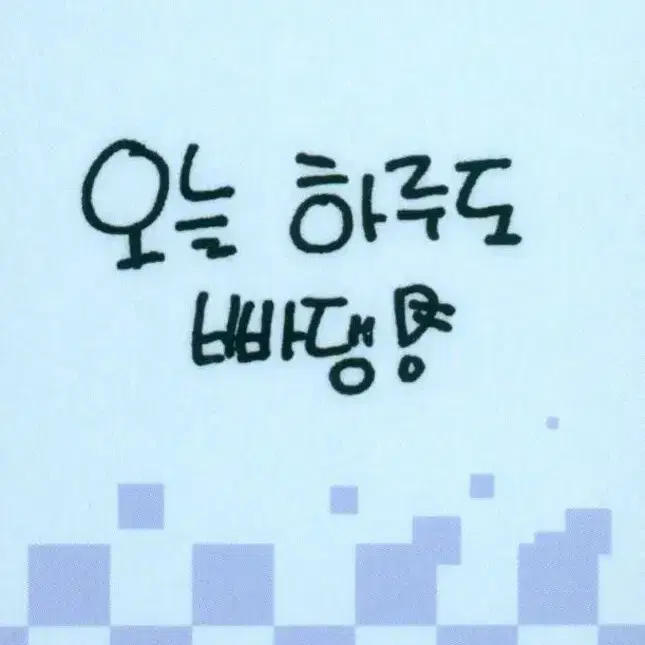 오늘 하루도
빠댕